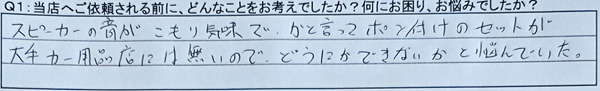 Q1:当店へご依頼される前に、どんなことをお考えでしたか?何にお困り、お悩みでしたか?
スピーカーの音がこもり気味で、かと言ってポン付けのセットが
大手カー用品店には無いので、どうにかできないかと悩んでいた。